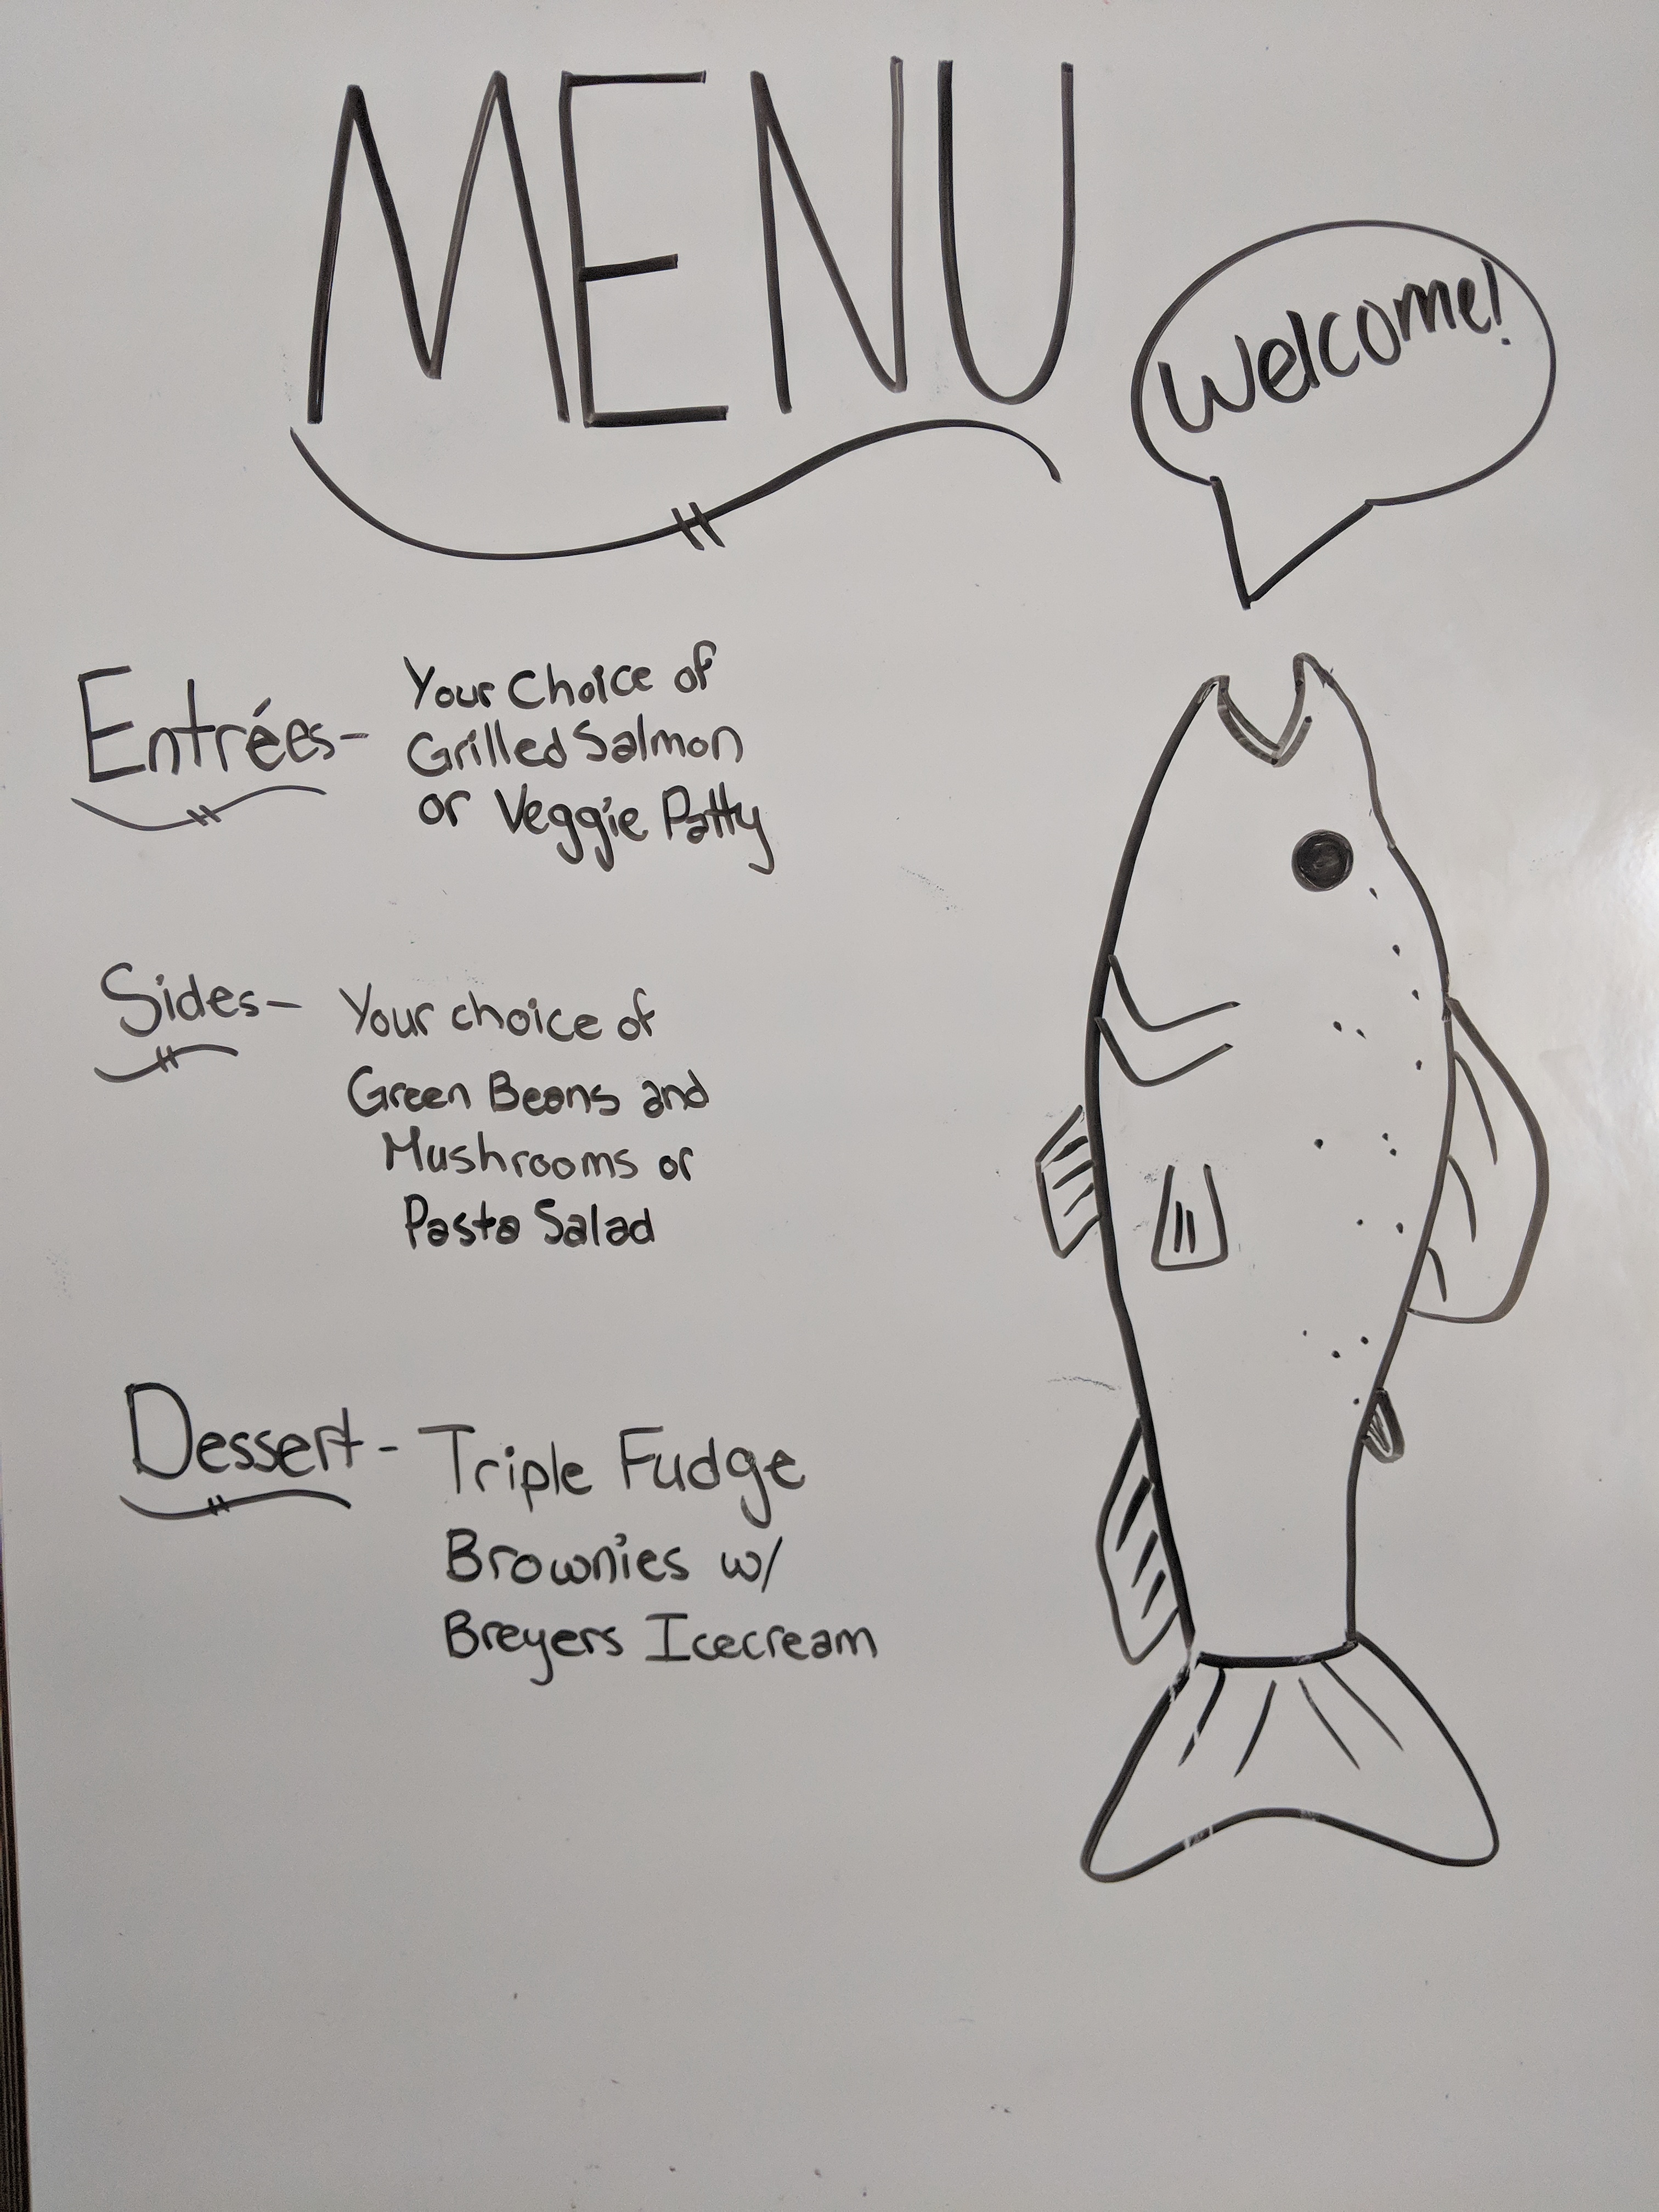 MENU
Welcome!
Entrées- Your Choice of
Grilled Salmon
or Veggie Patty
Sides- Your choice of
Green Beans and
Mushrooms or
Pasta Salad
Dessert- Triple Fudge
Brownies w/
Breyers Icecream